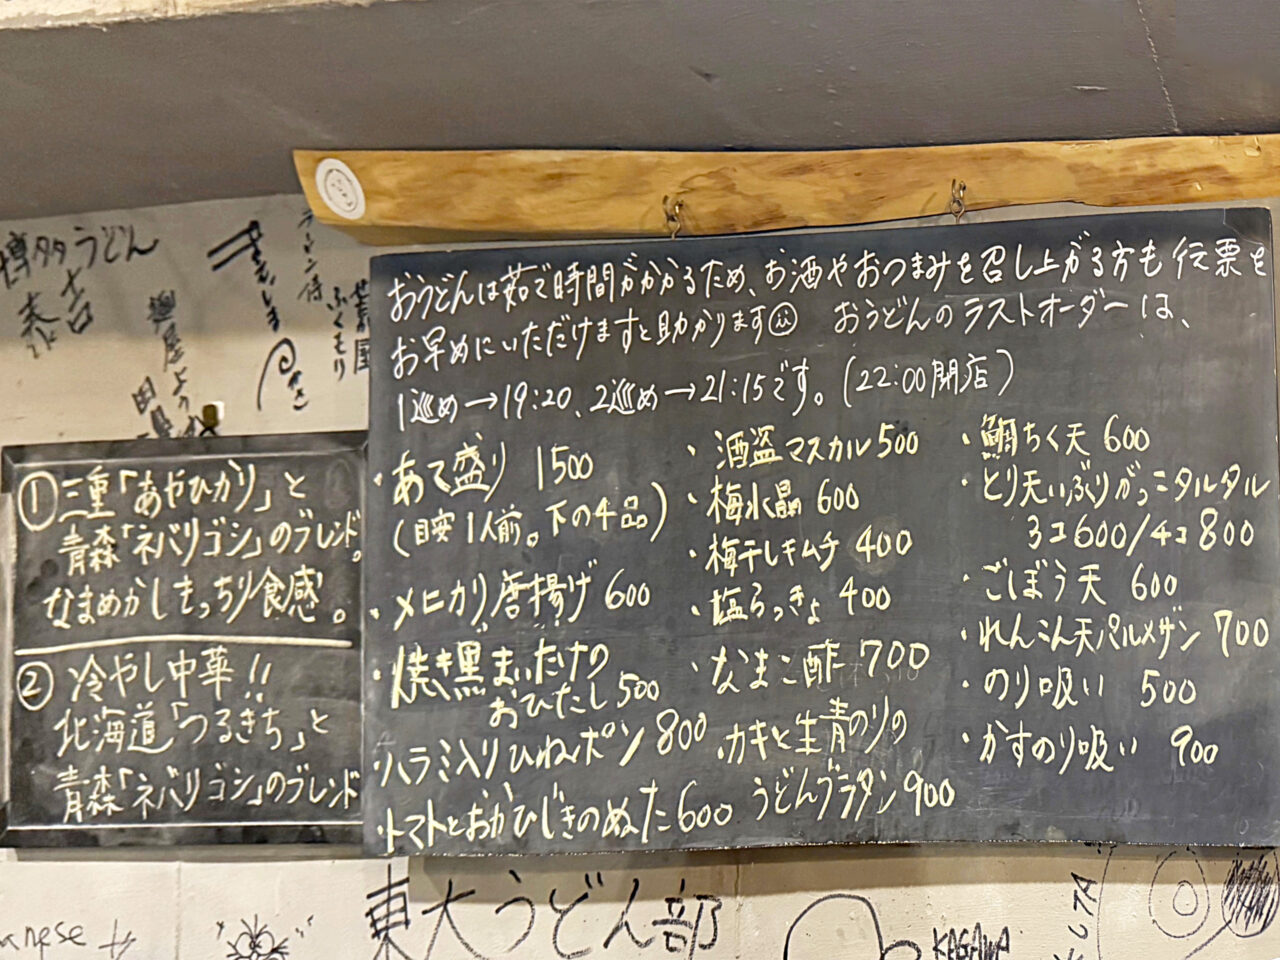 おうどんは茹で時間がかかるため、お酒やおつまみを召し上がる方も伝票を
お早めにいただけますと助かります おうどんのラストオーダーは、
1巡め→19:20、2巡め→21:15です。(22:00閉店)
・あて盛り 1500
(目安1人前。下の4品)
・メヒカリ唐揚げ 600
・焼き黒まいたけの
おひたし 500
・ハラミ入りひねポン 800
・トマトとおかひじきのぬた 600
・酒盗マスカル 500
・梅水晶 600
・梅干しキムチ 400
・塩らっきょ 400
・なまこ酢 700
・カキと生青のりの
うどんグラタン 900
・鯛ちく天 600
・とり天いぶりがっこタルタル
3コ600/4コ800
・ごぼう天 600
・れんこん天パルメザン 700
・のり吸い 500
・かすのり吸い 900
① 三重「あやひかり」と
青森「ネバリゴシ」のブレンド。
なまめかしきっちり食感。
② 冷やし中華!!
北海道「つるきち」と
青森「ネバリゴシ」のブレンド
博多うどん
東大うどん部
KAGAWA